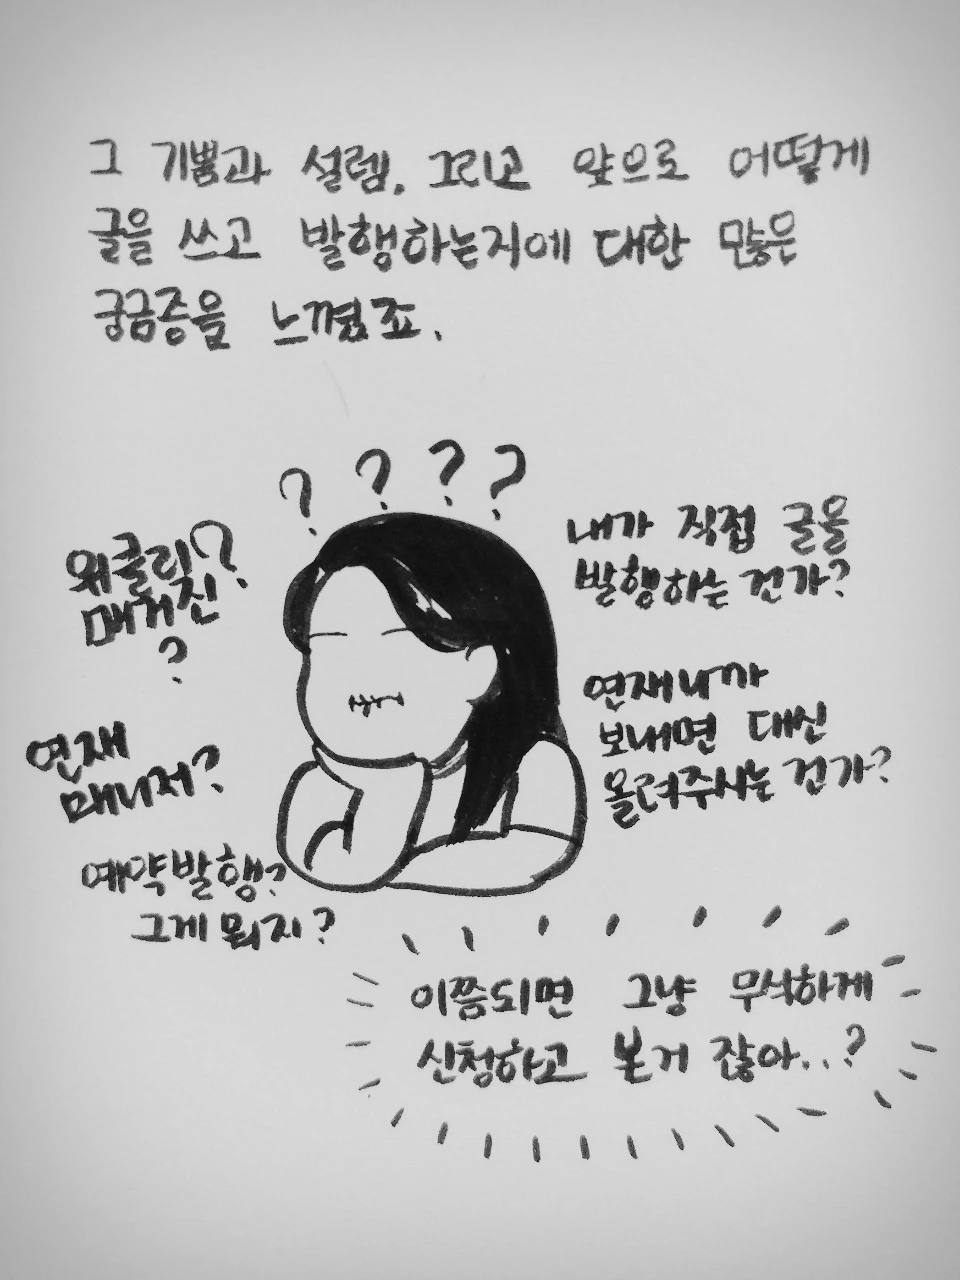 그 기쁨과 설렘. 그리고 앞으로 어떻게
글을 쓰고 발행하는지에 대한 많은
궁금증을 느꼈죠.
? ? ? ?
위클리?
매거진
?
연재
매니저?
예약발행?
그게 뭐지?
내가 직접 글을
발행하는 건가?
연재내가
보내면 대신
올려주시는 건가?
이쯤되면 그냥 무식하게
신청하고 본거 잖아..?